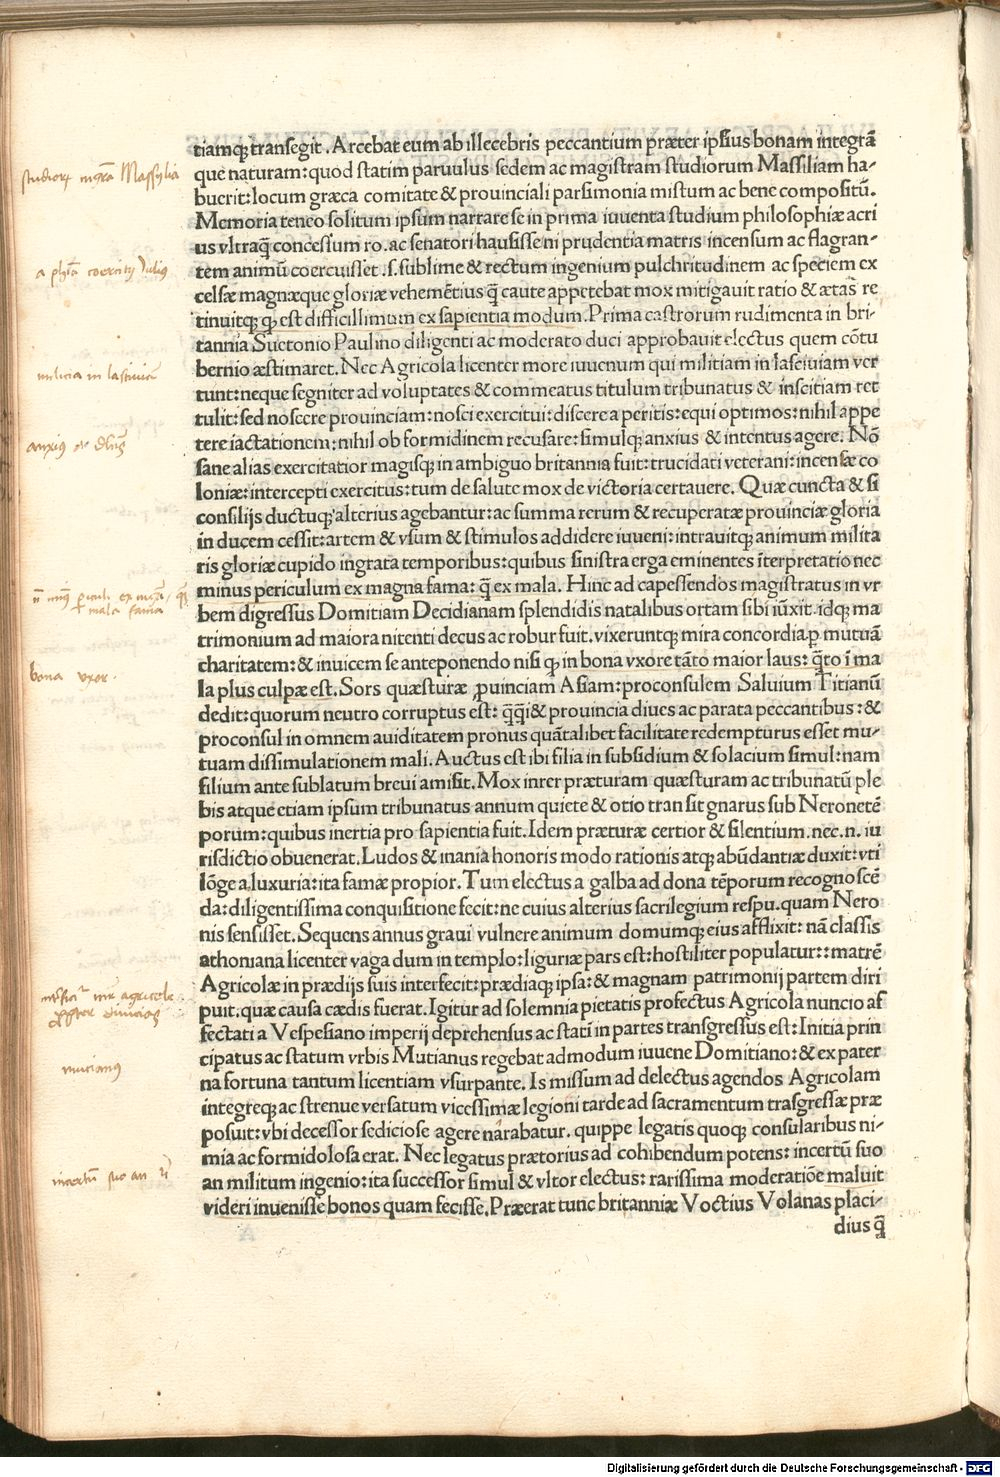 tiamq; transegit. Arcebat eum ab illecebris peccantium præter ipsius bonam integrā
que naturam: quod statim paruulus sedem ac magistram studiorum Massiliam ha-
buerit: locum græca comitate & prouinciali parsimonia mistum ac bene compositū.
Memoria teneo solitum ipsum narrare se in prima iuuenta studium philosophiæ acri
us vltraq̄ concessum ro. ac senatori hausisse ni prudentia matris incensum ac flagran-
tem animū coercuisset .s. sublime & rectum ingenium pulchritudinem ac speciem ex
celsæ magnæque gloriæ vehemētius q̄ caute appetebat mox mitigauit ratio & ætas re
tinuitq; qꝫ est difficillimum ex sapientia modum. Prima castrorum rudimenta in bri-
tannia Suetonio Paulino diligenti ac moderato duci approbauit electus quem cōtu
bernio æstimaret. Nec Agricola licenter more iuuenum qui militiam in lasciuiam ver
tunt: neque segniter ad voluptates & commeatus titulum tribunatus & inscitiam ret
tulit: sed noscere prouinciam: nosci exercitui: discere a peritis: equi optimos: nihil appe
tere iactationem: nihil ob formidinem recusare: simulq; anxius & intentus agere. Nō
sane alias exercitatior magisq; in ambiguo britannia fuit: trucidati veterani: incensæ co
loniæ: intercepti exercitus: tum de salute mox de victoria certauere. Quæ cuncta & si
consilijs ductuq; alterius agebantur: ac summa rerum & recuperatæ prouinciæ gloria
in ducem cessit: artem & vsum & stimulos addidere iuueni: intrauitq; animum milita
ris gloriæ cupido ingrata temporibus: quibus sinistra erga eminentes īterpretatio nec
minus periculum ex magna fama: q̄ ex mala. Hinc ad capessendos magistratus in vr
bem digressus Domitiam Decidianam splendidis natalibus ortam sibi iūxit. idq; ma
trimonium ad maiora nitenti decus ac robur fuit. vixeruntq; mira concordia ꝑ mutuā
charitatem: & inuicem se anteponendo nisi qꝫ in bona vxore tāto maior laus: q̄to ī ma
la plus culpæ est. Sors quæsturæ ꝓuinciam Asiam: proconsulem Saluium Titianū
dedit: quorum neutro corruptus est: q̄q̄i & prouincia diues ac parata peccantibus: &
proconsul in omnem auiditatem pronus quātalibet facilitate redempturus esset mu-
tuam dissimulationem mali. Auctus est ibi filia in subsidium & solacium simul: nam
filium ante sublatum breui amisit. Mox inrer præturam quæsturam ac tribunatū ple
bis atque etiam ipsum tribunatus annum quiete & otio transit gnarus sub Nerone tē
porum: quibus inertia pro sapientia fuit. Idem præturæ certior & silentium. nec. n. iu
risdictio obuenerat. Ludos & inania honoris modo rationis atq; abūdantiæ duxit: vti
lōge a luxuria: ita famæ propior. Tum electus a galba ad dona tēporum recognoscē
da: diligentissima conquisitione fecit: ne cuius alterius sacrilegium respu. quam Nero
nis sensisset. Sequens annus graui vulnere animum domumq; eius afflixit: nā classis
athoniana licenter vaga dum in templo: liguriæ pars est: hostiliter populatur:: matrē
Agricolæ in prædijs suis interfecit: prædiaq; ipsa: & magnam patrimonij partem diri
puit. quæ causa cædis fuerat. Igitur ad solemnia pietatis profectus Agricola nuncio af
fectati a Vespesiano imperij deprehensus ac statī in partes transgressus est: Initia prin
cipatus ac statum vrbis Mutianus regebat admodum iuuene Domitiano: & ex pater
na fortuna tantum licentiam vsurpante. Is missum ad delectus agendos Agricolam
integreq; ac strenue versatum vicessimæ legioni tarde ad sacramentum trasgressæ præ
posuit: vbi decessor sediciose agere narabatur. quippe legatis quoq; consularibus ni-
mia ac formidolosa erat. Nec legatus prætorius ad cohibendum potens: incertū suo
an militum ingenio: ita successor simul & vltor electus: rarissima moderatiōe maluit
videri inuenisse bonos quam fecisse. Præerat tunc britanniæ Voctius Volanas placi-
dius q̄
militia in lasciuiā
bona vxor.
mucianus
incertū suo an
Digitalisierung gefördert durch die Deutsche Forschungsgemeinschaft - DFG